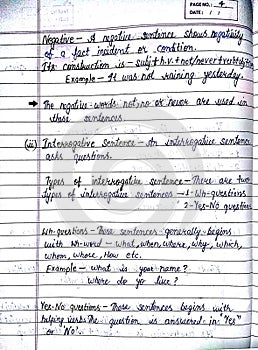 PAGE NO.: 4
DATE: / /
Negative - A negative sentence shows negativity
of a fact, incident or condition.
Its construction is - subj+h.v.+not/never+verb+
Example - It was not raining yesterday.
→ The negative words not, no or never are used in
these sentences.
(ii) Interrogative Sentence - An interrogative sentence
asks questions.
Types of interrogative sentence - There are two
types of interrogative sentences - 1- Wh-questions
2- Yes-No questions
Wh-questions - These sentences generally begins
with Wh-word - what, when, where, why, which,
whom, whose, How etc.
Example - what is your name?
where do you live?
Yes-No questions - These sentences begins with
helping verbs. The question is answered in "Yes"
or "No".